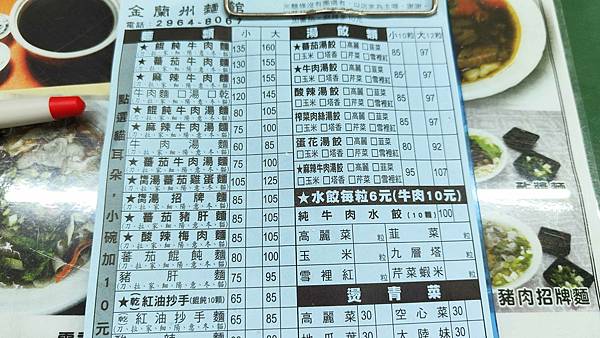 金蘭州麵館
電話：2964-8067
麵類 小 大
★餛飩牛肉麵 135 160
★番茄牛肉麵 130 155
★麻辣牛肉麵 130 155
牛肉麵 湯 乾 120 145
★餛飩牛肉湯麵 80 105
★麻辣牛肉湯麵 75 100
牛肉湯麵 60 85
★番茄牛肉湯麵 75 100
湯番茄雞蛋麵 85 105
湯招牌麵 85 105
★番茄豬肝麵 85 105
★酸辣梅肉麵 85 105
番茄餛飩麵 80 100
豬肝麵 75 95
★乾紅油抄手(餛飩10顆) 65 85
乾紅油抄手麵 65 85
點選貓耳朵，小碗加10元
湯餃類 小10粒 大12粒
★番茄湯餃 □高麗 □韮菜
□玉米 □塔香 □芹菜 □雪裡紅 85 97
★牛肉湯餃 □高麗 □韮菜
□玉米 □塔香 □芹菜 □雪裡紅 85 97
酸辣湯餃 □高麗 □韮菜
□玉米 □塔香 □芹菜 □雪裡紅 85 97
榨菜肉絲湯餃 □高麗 □韮菜
□玉米 □塔香 □芹菜 □雪裡紅 85 97
蛋花湯餃 □高麗 □韮菜
□玉米 □塔香 □芹菜 □雪裡紅 80 92
★麻辣牛肉湯餃 □高麗 □韮菜
□玉米 □塔香 □芹菜 □雪裡紅 95 107
★水餃每粒6元(牛肉10元)
純牛肉水餃(10顆) 100
高麗菜 粒 韮菜 粒
玉米 粒 九層塔 粒
雪裡紅 粒 芹菜蝦米 粒
燙青菜
高麗菜 30 空心菜 30
地瓜葉 30 大陸妹 30
炸醬麵
豬肉招牌麵